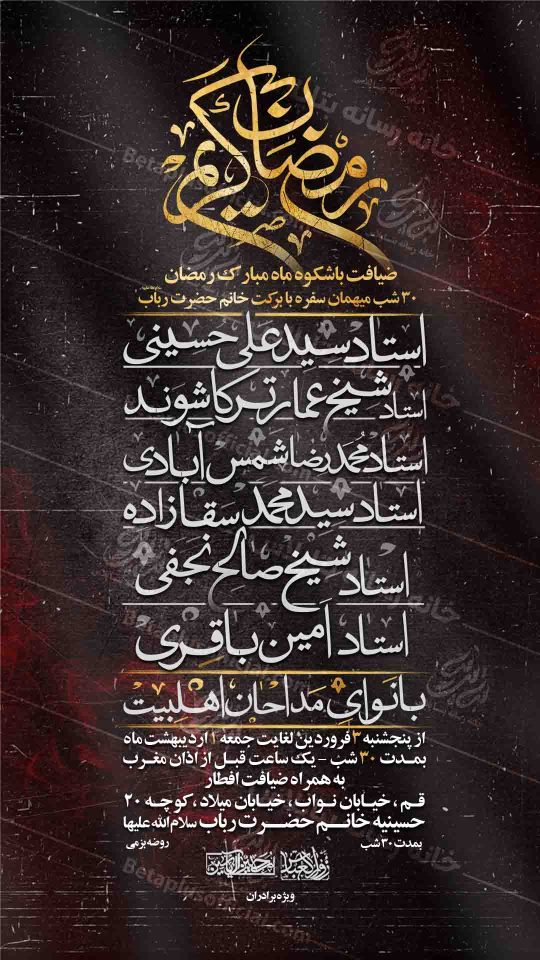 رمضان کریم
ضیافت باشکوه ماه مبارک رمضان
۳۰ شب میهمان سفره با برکت خانم حضرت رباب
استاد سید علی حسینی
استاد شیخ عمار ترکاشوند
استاد محمدرضا شمس آبادی
استاد سید محمد سقازاده
استاد شیخ صالح نجفی
استاد امین باقری
با نوای مداحان اهلبیت
از پنجشنبه ۳ فروردین لغایت جمعه ۱ اردیبهشت ماه
بمدت ۳۰ شب - یک ساعت قبل از اذان مغرب
به همراه ضیافت افطار
قم ، خیابان نواب ، خیابان میلاد ، کوچه ۲۰
حسینیه خانم حضرت رباب سلام الله علیها
بمدت ۳۰ شب
روضه بزمی
ویژه برادران
خانه رسانه بتا
Betaplusofficial.com